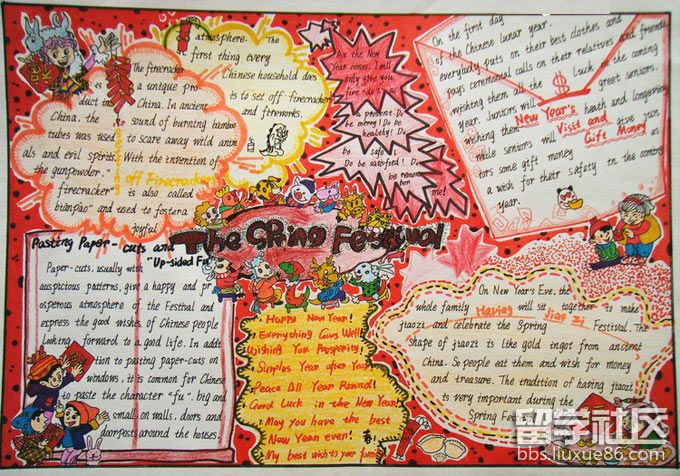 The firecracker
is
a unique pro
duct in
China. In ancient
China, the
sound of burning bamboo
tubes was used
to scare away wild anim
als and evil spirits.
With the invention of
the gunpowder."
off Firecracker
firecracker"
is also called
bianpao" and used to foster a
joyful
atmosphere. The
first thing every
Chinese household does
is to set off firecracker
and fireworks.
As the New
Year comes, I will
only give you
five "do's"
present: Do
be merry! Do be
healthy! Do
be safe!
Do be satisfied! Do
be remember
me!
On the first day
of the Chinese lunar year.
everybody puts on their best clothes and
pays ceremonial calls on their relatives and friends
wishing them all the $ luck in the coming
year. Juniors will greet seniors,
wishing them New Year's heath and longevity
male seniors will Visit and give juni
ors some gift money Gift Money as
a wish for their safety in the coming
year.
The SRing Festival
Pasting Paper-cuts and
"Up-sided Fu"
Paper-cuts, usually with
auspicious patterns, give a happy and pr
osperous atmosphere of the Festival and
express the good wishes of Chinese people
Looking forward to a good life. In addi
tion to pasting paper-cuts on
windows, it is common for Chinese
to paste the character "fu". big and
small on walls, doors and
doorposts around the houses.
Happy New Year!
Everything Goes Well!
Wishing You Prosperity!
Surplus Year after Year
Peace All Year Round!
Good Luck in the New Year!
May you have the best
New Year ever!
My best wish to your family
On New Year's Eve, the
whole family Having will sit together to make
jiaozi and celebrate the Spring Jiao Zi Festival. The
shape of jiaozi is like gold ingot from ancient
China. So people eat them and wish for money
and treasure. The tradition of having jiaozi
is very important during the
Spring Fes
留学社区
bbs.liuxue86.com